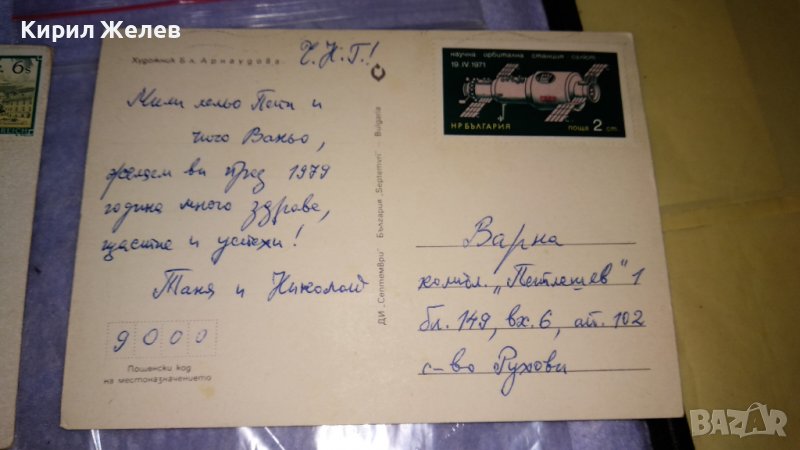 Кирил Желев
6s
REICH
Художник Бл. Арнаудова
Ч.Н.Г.!
Мили лельо Пепа и
чичо Ваньо,
желаем ви през 1979
година много здраве,
щастие и успехи!
Таня и Николай
9000
Пощенски код
на местоназначението
ДИ „Септември" - България „Septemvri" - Bulgaria
научна орбитална станция салют
19.IV.1971
НР БЪЛГАРИЯ поща 2 ст
Варна
компл. 1
бл. 149, вх. 6, ап. 102
с-во Рухови
BAZAR